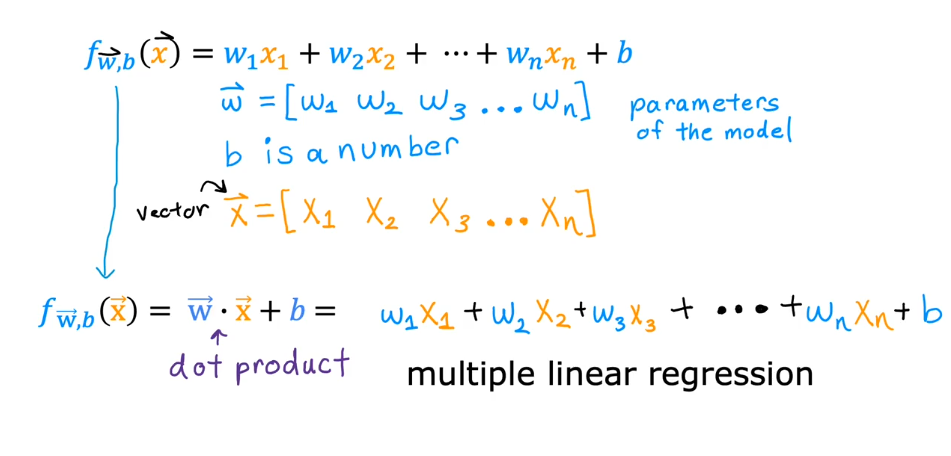 f_w⃗,b(x⃗) = w₁x₁ + w₂x₂ + ⋯ + wₙxₙ + b
w⃗ = [w₁ w₂ w₃ ... wₙ] parameters
of the model
b is a number
vector x⃗ = [x₁ x₂ x₃ ... xₙ]
f_w⃗,b(x⃗) = w⃗ · x⃗ + b = w₁x₁ + w₂x₂ + w₃x₃ + ⋯ + wₙxₙ + b
dot product
multiple linear regression